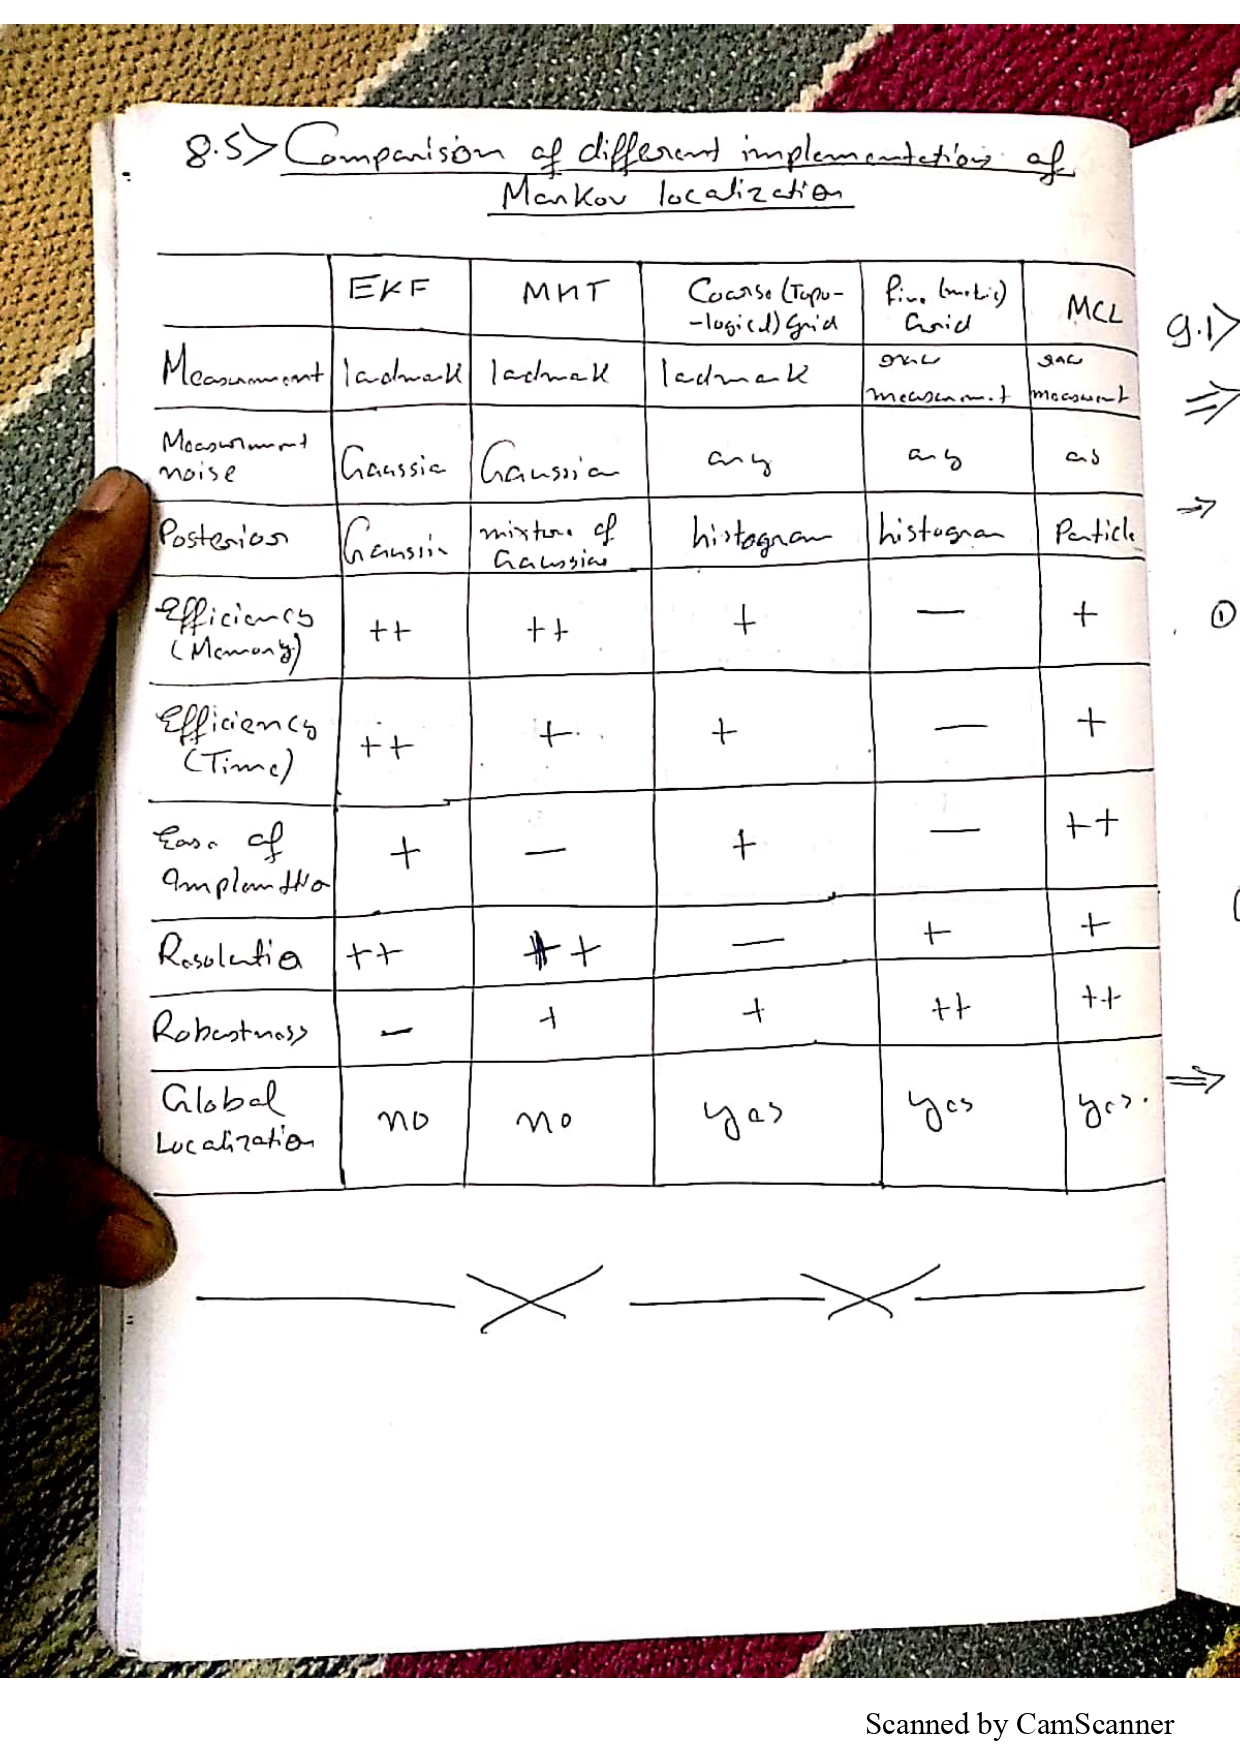 8.5> Comparision of different implementations of
Markov localization
EKF MHT Coarse (Topo- fine (metric) MCL
-logical) Grid Grid
Measurment landmark landmark landmark raw measurement raw measurement
Measurment noise Gaussian Gaussian any any any
Posterior Gaussian mixture of Gaussians histogram histogram Particle
Efficiency (Memory) ++ ++ + — +
Efficiency (Time) ++ + + — +
Ease of + — + — ++
Resolution ++ ++ — + +
Robustness — + + ++ ++
Global Localization no no yes yes yes.
9.1>
⇒
⇒
①
⇒
Scanned by CamScanner